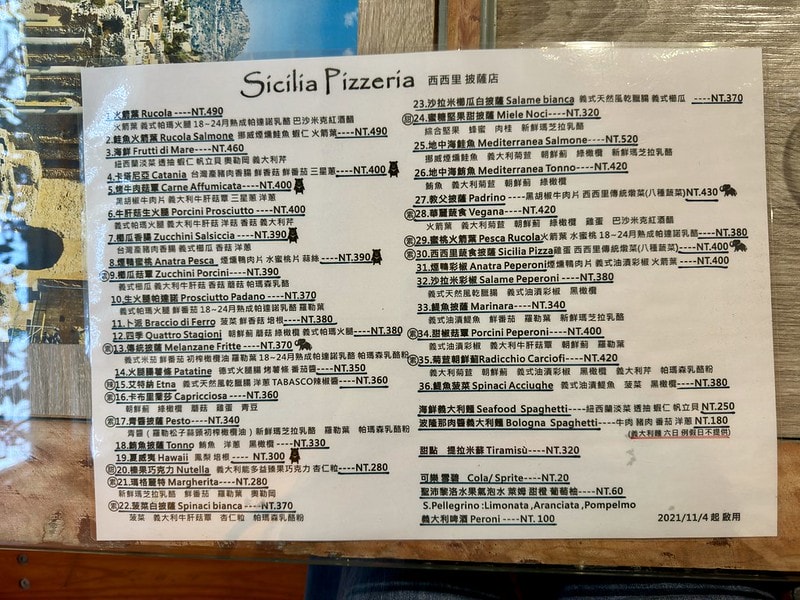 Sicilia Pizzeria 西西里 披薩店
1.火箭葉 Rucola ----NT.490
火箭葉 義式帕瑪火腿 18~24月熟成帕達諾乳酪 巴沙米克紅酒醋
2.鮭魚火箭葉 Rucola Salmone 挪威煙燻鮭魚 蝦仁 火箭葉----NT.490
3.海鮮 Frutti di Mare----NT.460
紐西蘭淡菜 透抽 蝦仁 帆立貝 奧勒岡 義大利芹
4.卡塔尼亞 Catania 台灣產豬肉香腸 鮮香菇 鮮番茄 三星蔥----NT.400
5.燻牛肉菇蕈 Carne Affumicata----NT.400
黑胡椒牛肉片 義大利牛肝菇蕈 三星蔥 洋蔥
6.牛肝菇生火腿 Porcini Prosciutto----NT.400
義式帕瑪火腿 義大利牛肝菇蕈 洋菇 香菇 義大利芹
7.櫛瓜香腸 Zucchini Salsiccia----NT.390
台灣產豬肉香腸 義式櫛瓜 香菇 洋蔥
8.煙燻鴨桃 Anatra Pesca_ 煙燻鴨肉片 水蜜桃片 蒜絲----NT.390
素9.櫛瓜菇蕈 Zucchini Porcini----NT.390
義式櫛瓜 義大利牛肝菇 香菇 蘑菇 帕瑪森乳酪
10.生火腿帕達諾 Prosciutto Padano----NT.370
義式帕瑪火腿 鮮番茄 18~24月熟成帕達諾乳酪 羅勒葉
11.卜派 Braccio di Ferro 菠菜 鮮香菇 培根----NT.380
12.四季 Quattro Stagioni 朝鮮薊 蘑菇 綠橄欖 義式帕瑪火腿----NT.380
素13.傳統披薩 Melanzane Fritte----NT.370
義式米茄 鮮番茄 初榨橄欖油 羅勒葉 18~24月熟成帕達諾乳酪 帕瑪森乳酪粉
14.火腿腸薯條 Patatine 德式火腿腸 燒薯條 番茄醬----NT.350
辣15.艾特納 Etna 義式天然風乾臘腸 洋蔥 TABASCO辣椒醬----NT.360
素16.卡布里喬莎 Capricciosa----NT.360
朝鮮薊 綠橄欖 蘑菇 雞蛋 青豆
素17.青醬披薩 Pesto----NT.340
青醬（羅勒松子蒜頭初榨橄欖油）新鮮瑪芝拉乳酪 羅勒葉 帕瑪森乳酪粉
18.鮪魚披薩 Tonno 鮪魚 洋蔥 黑橄欖 ----NT.330
19.夏威夷 Hawaii 鳳梨 培根---- NT.300
甜20.榛果巧克力 Nutella 義大利能多益臻果巧克力 杏仁粒----NT.280
素21.瑪格麗特 Margherita----NT.280
新鮮瑪芝拉乳酪 鮮番茄 羅勒葉 奧勒岡
素22.菠菜白披薩 Spinaci bianca----NT.370
菠菜 義大利牛肝菇蕈 杏仁粒 帕瑪森乳酪粉
23.沙拉米櫛瓜白披薩 Salame bianca 義式天然風乾臘腸 義式櫛瓜 ----NT.370
甜24.蜜糖堅果甜披薩 Miele Noci----NT.320
綜合堅果 蜂蜜 肉桂 新鮮瑪芝拉乳酪
25.地中海鮭魚 Mediterranea Salmone----NT.520
挪威煙燻鮭魚 義大利菊苣 朝鮮薊 綠橄欖 新鮮瑪芝拉乳酪
26.地中海鮪魚 Mediterranea Tonno----NT.420
鮪魚 義大利菊苣 朝鮮薊 綠橄欖
27.教父披薩 Padrino ----黑胡椒牛肉片 西西里傳統燉菜(八種蔬菜)NT.430
素28.華麗蔬食 Vegana----NT.420
火箭葉 義大利菊苣 朝鮮薊 綠橄欖 雞蛋 巴沙米克紅酒醋
素29.蜜桃火箭葉 Pesca Rucola火箭葉 水蜜桃 18~24月熟成帕達諾乳酪----NT.380
素30.西西里蔬食披薩 Sicilia Pizza雞蛋 西西里傳統燉菜(八種蔬菜)----NT.400
31.煙鴨彩椒 Anatra Peperoni煙燻鴨肉片 義式油漬彩椒 火箭葉----NT.400
32.沙拉米彩椒 Salame Peperoni ----NT.380
義式天然風乾臘腸 義式油漬彩椒 黑橄欖
33.鯷魚披薩 Marinara----NT.340
義式油漬鯷魚 鮮番茄 羅勒葉 新鮮瑪芝拉乳酪
素34.甜椒菇蕈 Porcini Peperoni----NT.400
義式油漬彩椒 義大利牛肝菇蕈 朝鮮薊 羅勒葉
素35.菊苣朝鮮薊Radicchio Carciofi----NT.420
義大利菊苣 朝鮮薊 黑橄欖 帕瑪森乳酪粉
36.鯷魚菠菜 Spinaci Acciughe 義式油漬鯷魚 菠菜 黑橄欖----NT.380
海鮮義大利麵 Seafood Spaghetti----紐西蘭淡菜 透抽 蝦仁 帆立貝 NT.250
波隆那肉醬義大利麵 Bologna Spaghetti-----牛肉 豬肉 番茄 洋蔥 NT.180
(義大利麵 六日 例假日不提供)
甜點 提拉米蘇 Tiramisù----NT.320
可樂 雪碧 Cola/ Sprite----NT.20
聖沛黎洛水果氣泡水 萊姆 甜橙 葡萄柚----NT.60
S.Pellegrino :Limonata ,Aranciata ,Pompelmo
義大利啤酒 Peroni ----NT. 100
2021/11/4 起 啟用